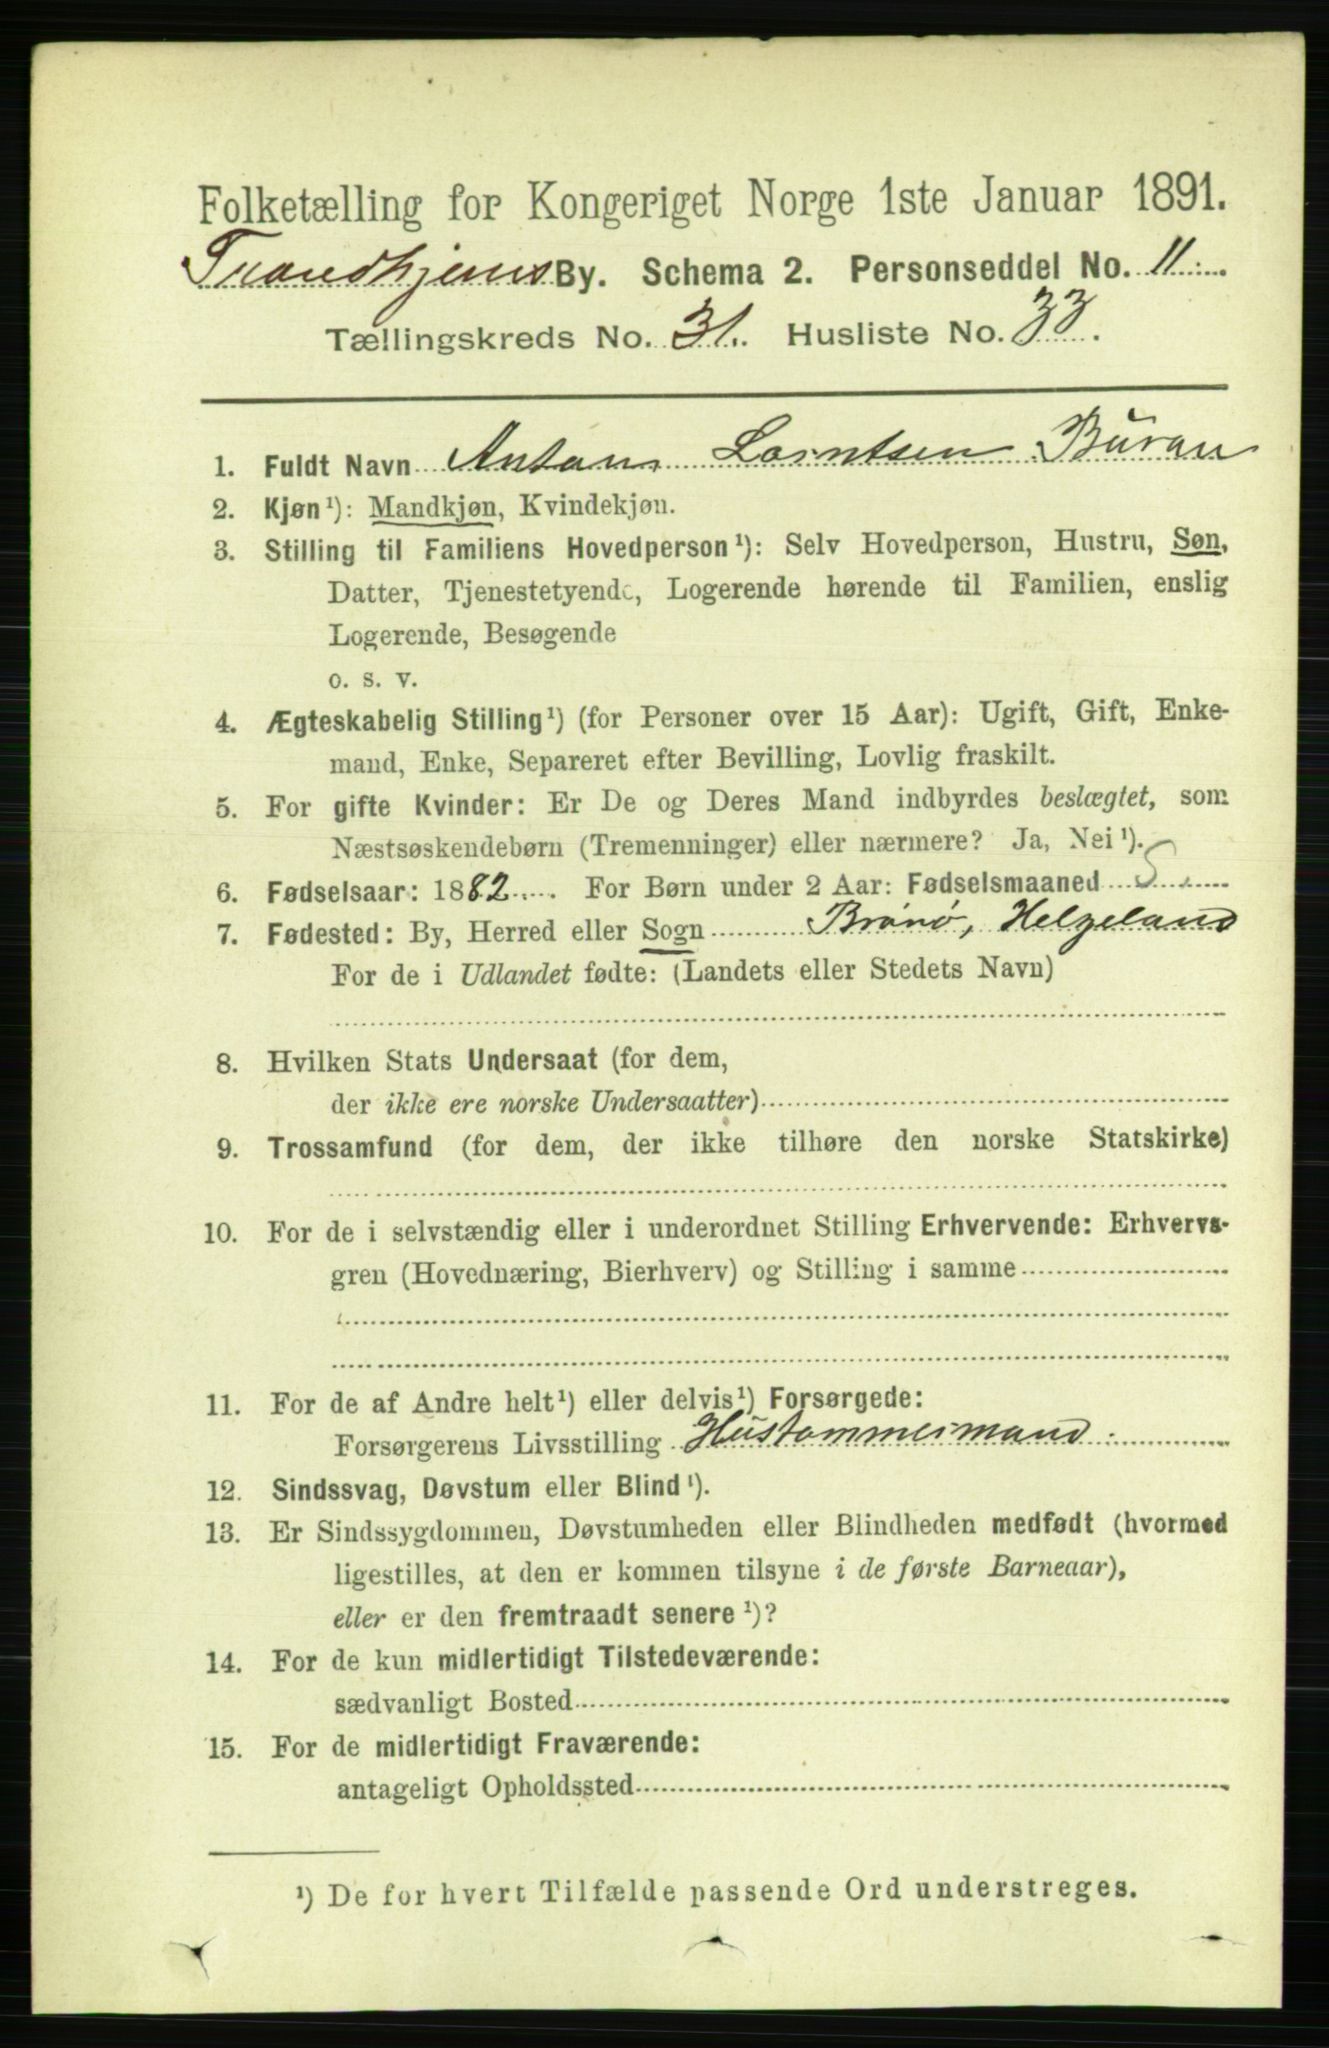 Folketælling for Kongeriget Norge 1ste Januar 1891.
Trondhjems By. Schema 2. Personseddel No. 11
Tællingskreds No. 31. Husliste No. 33.
1. Fuldt Navn Anton Lorntsen Buran
2. Kjøn¹): Mandkjøn, Kvindekjøn.
3. Stilling til Familiens Hovedperson¹): Selv Hovedperson, Hustru, Søn,
Datter, Tjenestetyende, Logerende hørende til Familien, enslig
Logerende, Besøgende
o. s. v.
4. Ægteskabelig Stilling¹) (for Personer over 15 Aar): Ugift, Gift, Enke-
mand, Enke, Separeret efter Bevilling, Lovlig fraskilt.
5. For gifte Kvinder: Er De og Deres Mand indbyrdes beslægtet, som
Næstsøskendebørn (Tremenninger) eller nærmere? Ja, Nei¹).
6. Fødselsaar: 1882. For Børn under 2 Aar: Fødselsmaaned S
7. Fødested: By, Herred eller Sogn Brønø, Helgeland
For de i Udlandet fødte: (Landets eller Stedets Navn)
8. Hvilken Stats Undersaat (for dem,
der ikke ere norske Undersaatter)
9. Trossamfund (for dem, der ikke tilhøre den norske Statskirke)
10. For de i selvstændig eller i underordnet Stilling Erhvervende: Erhvervs-
gren (Hovednæring, Bierhverv) og Stilling i samme
11. For de af Andre helt¹) eller delvis¹) Forsørgede:
Forsørgerens Livsstilling Hustømmermand
12. Sindssvag, Døvstum eller Blind¹).
13. Er Sindssygdommen, Døvstumheden eller Blindheden medfødt (hvormed
ligestilles, at den er kommen tilsyne i de første Barneaar),
eller er den fremtraadt senere¹)?
14. For de kun midlertidigt Tilstedeværende:
sædvanligt Bosted
15. For de midlertidigt Fraværende:
antageligt Opholdssted
¹) De for hvert Tilfælde passende Ord understreges.